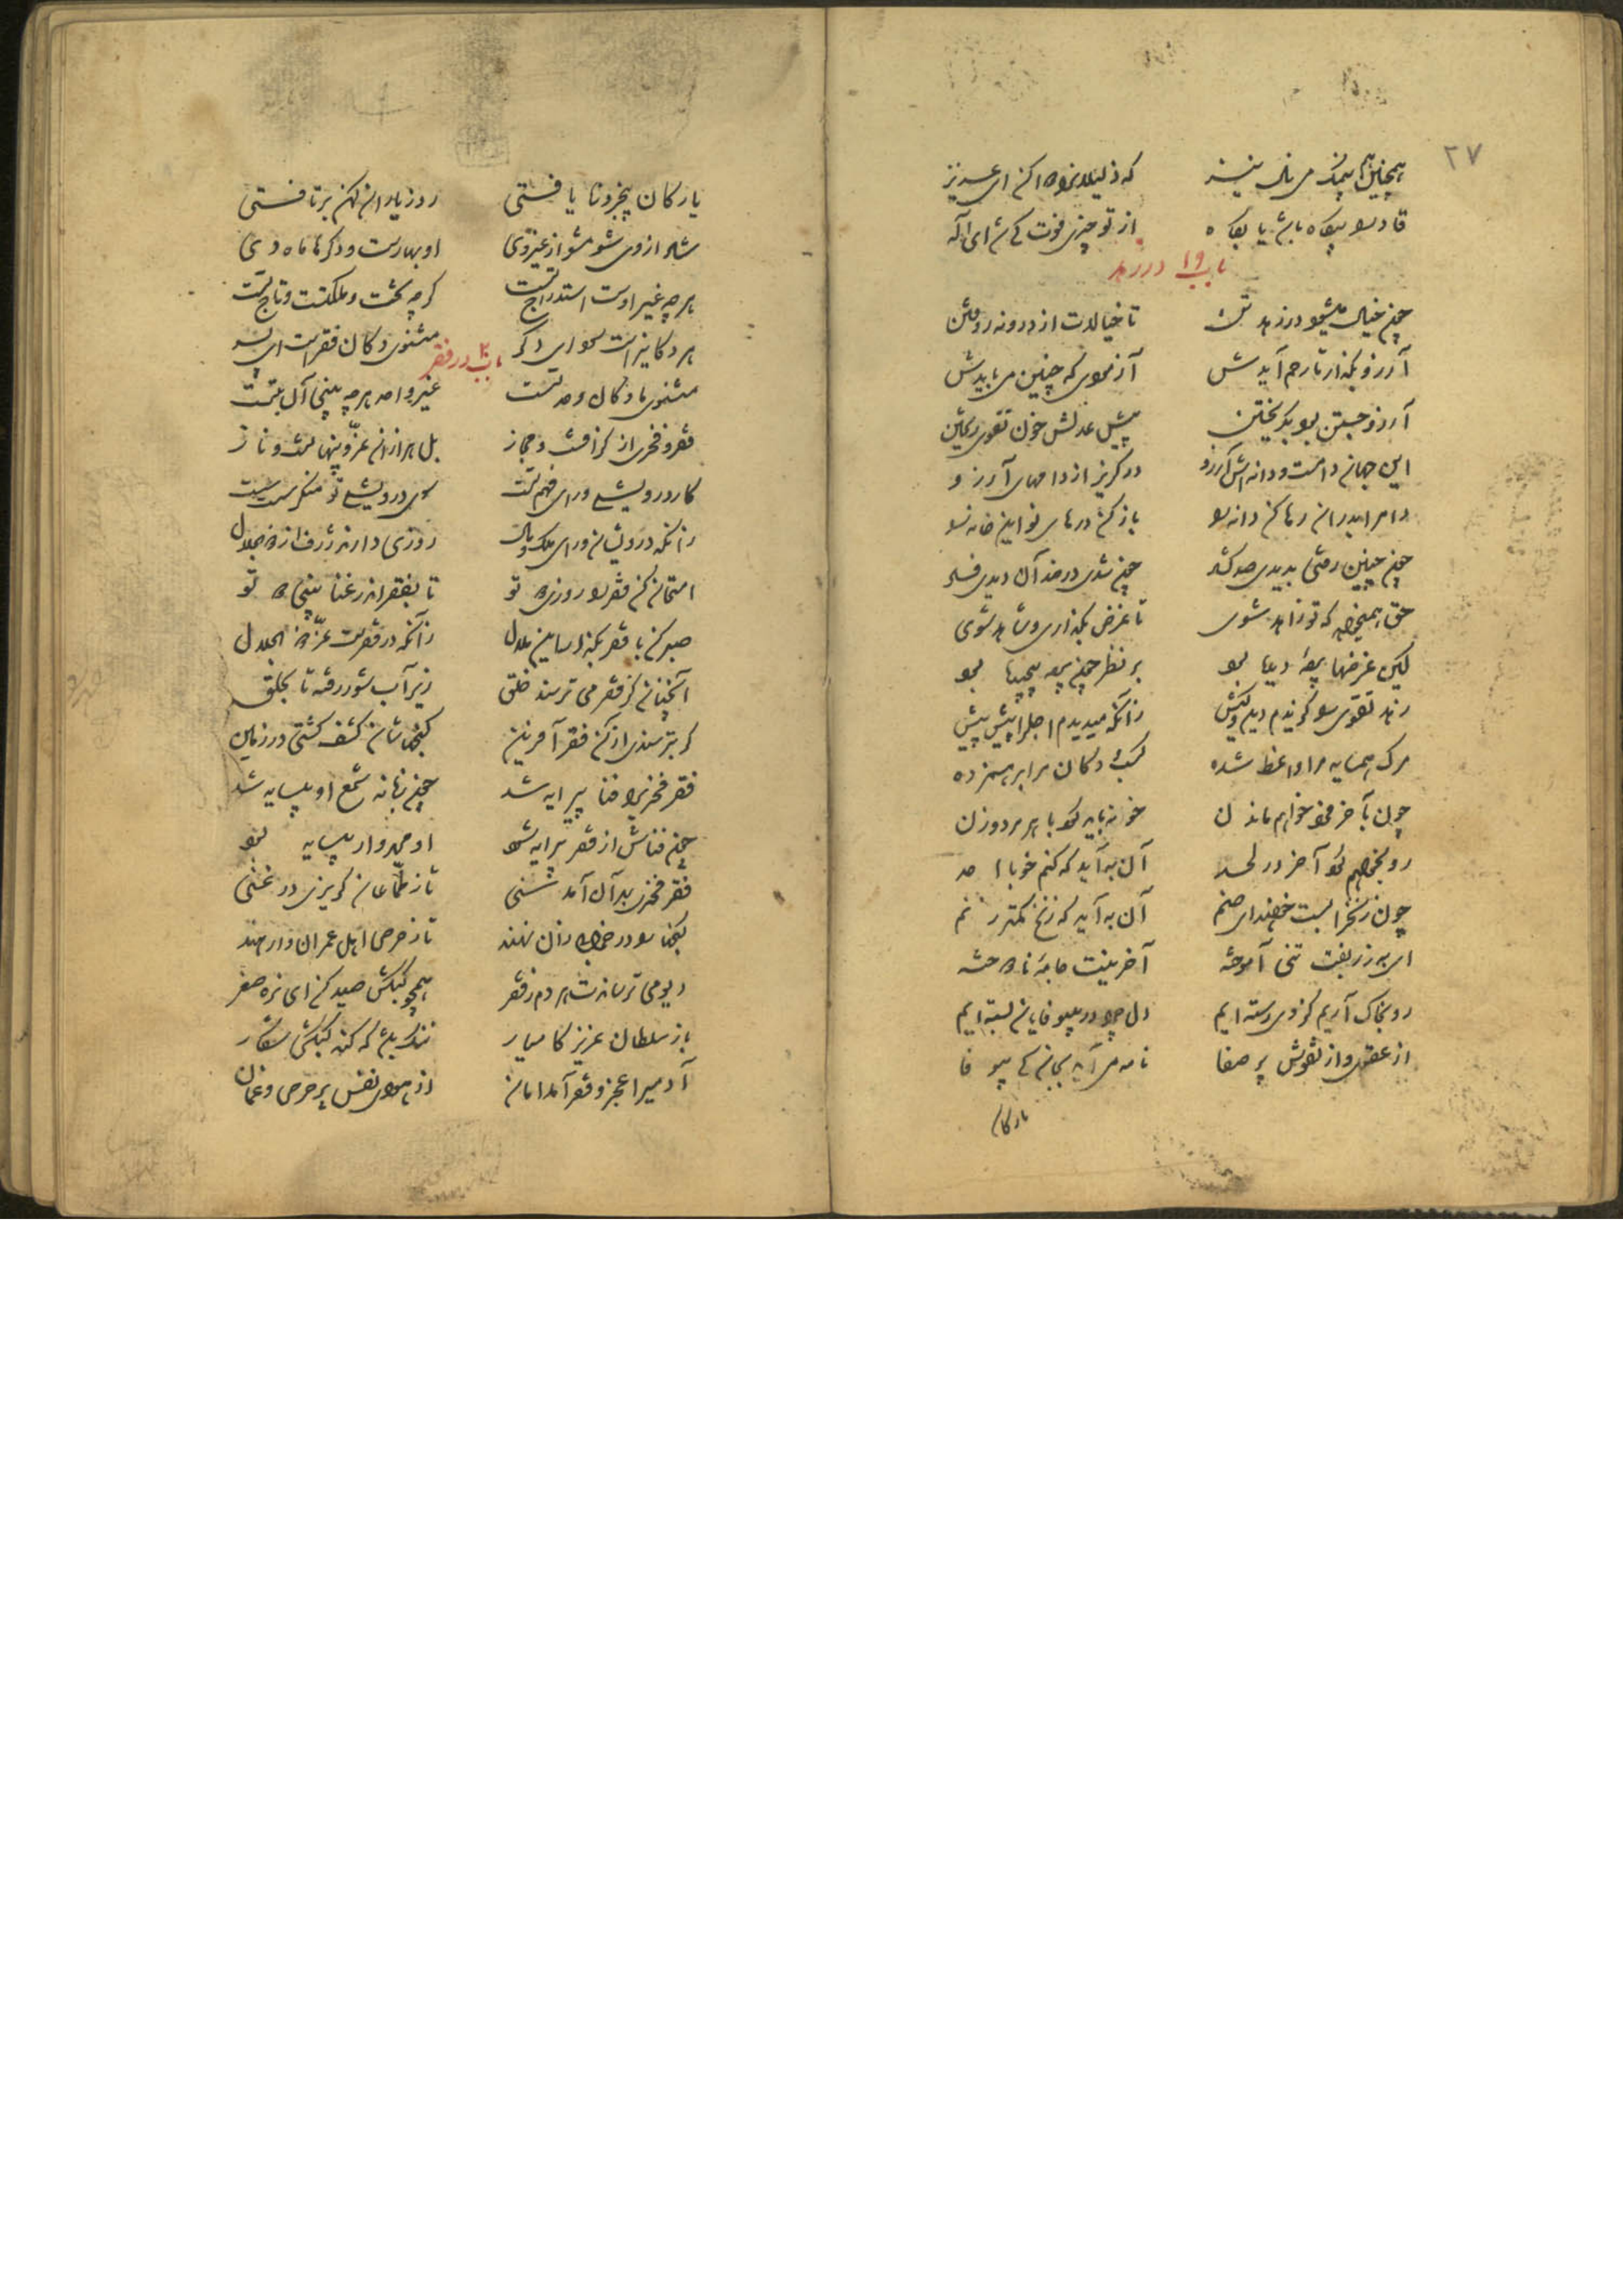 ۲۷
همچنین هم میان می نال نیز که ذلیلان را نوا کن ای عزیز
قادرا بیگاه باش یا بگاه از تو چیزی فوت کی شد ای اله
باب ۱۹ در زهد
چون خیالی میشود در زهد تن تا خیالات از درونه روفتن
آرزو بگذار تا رحم آیدش آزمودی که چنین می بایدش
آرزو جستن بود بگریختن پیش عدلش خون تقوی ریختن
این جهان دامست و دانه‌اش آرزو در گریز از دامهای آرزو
دام را بدران رها کن دانه را باز کن درهای نو این خانه را
چون چنین رفتی بدیدی صد گشاد چون شدی در ضد آن دیدی فساد
حق همیخواهد که تو زاهد شوی تا غرض بگذاری و شاهد شوی
لیکن غرضها پرده دیده بود بر نظر چون پرده پیچیده بود
زهد و تقوی را گزیدم دین و کیش زانکه میدیدم اجل را پیش پیش
مرگ همسایه مرا واعظ شده کسب و دکان مرا برهم زده
چون بآخر فرد خواهم ماندن خو نباید کرد با هر مرد و زن
رو بخواهم کرد آخر در لحد آن به آید که کنم خو با احد
چون زنخ را بست خواهند ای صنم آن به آید که زنخ کمتر زنم
ای بزربفت تنی آموخته آخرینت جامه نادوخته
رو بخاک آریم کز وی رسته‌ایم دل چرا در بیوفایان بسته‌ایم
از عقول و از نفوس پر صفا نامه می آید بجان کی بیوفا
یارکان
یارکان پنجروزه یافتی رو ز یاران کهن برتافتی
شاد از وی شو مشو از غیر وی او بهارست و دگرها ماه دی
هرچه غیر اوست استدراج تست گرچه تخت و ملکتست و تاج تست
هر دکانیراست سودای دگر مثنوی دکان فقرست ای پسر
باب ۲۰ در فقر
مثنوی ما دکان وحدتست غیر واحد هرچه بینی آن بتست
فقر و فخری از گزافست و مجاز بل هزاران عز پنهانست و ناز
کار درویشی ورای فهم تست سوی درویشی تو منگر سست سست
زانکه درویشان ورای ملک و مال روزی دارند ژرف از ذوالجلال
امتحان کن فقر را روزی دو تو تا بفقر اندر غنا بینی دو تو
صبر کن با فقر بگذار این ملال زانکه در فقرست عز ذوالجلال
آنچنان کز فقر می ترسند خلق زیر آب شور رفته تا بحلق
گر بترسندی از آن فقر آفرین گنجهاشان کشف گشتی در زمین
فقر فخری را فنا پیرایه شد چون زبانه شمع او بیسایه شد
چون فناش از فقر پیرایه شود او محمدوار بیسایه بود
فقر فخری بهر آن آمد سنی تا ز طماعان گریزی در غنی
گنجها را در خرابی زان نهند تا ز حرص اهل عمران وارهند
دیو می ترساندت هر دم ز فقر همچو کبکش صید کن ای نره صقر
باز سلطان عزیز کامیار ننگ باشد که کند کبکش شکار
آدمیرا عجز و فقر آمد امان از بلای نفس پر حرص و غمان